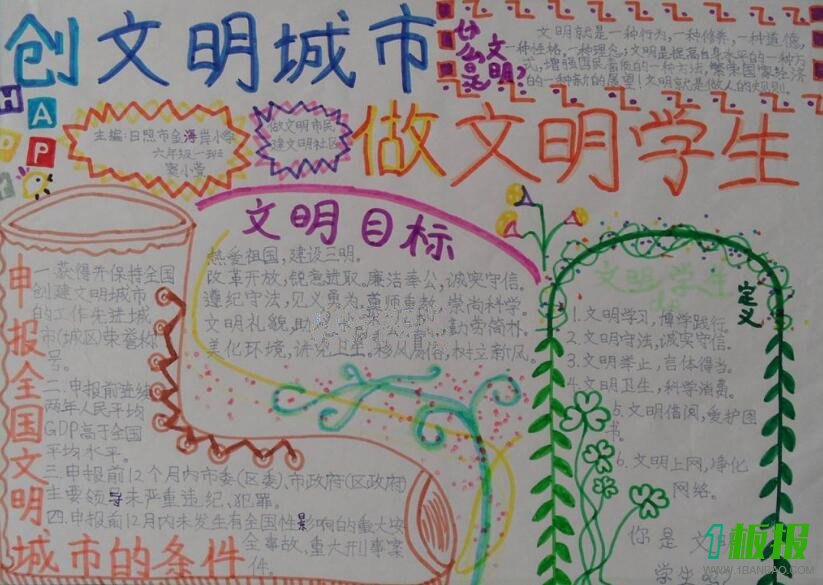 创文明城市
做文明学生
HAPPY
什么是文明?
文明就是一种行为,一种修养,一种道德,
一种性格,一种理念;文明是提高自身水平的一种方
式,增强国民素质的一种方法,繁荣国家经济
的一种新的展望!文明就是做人的规则。
主编:日照市金海岸小学
六年级一班
做文明市民
建文明社区
文明目标
热爱祖国,建设三明。
改革开放,锐意进取。廉洁奉公,诚实守信。
遵纪守法,见义勇为。尊师重教,崇尚科学
文明礼貌,助
勤劳简朴。
美化环境,讲究卫生。移风易俗,树立新风
申报全国文明
城市的条件
一.获得并保持全国
创建文明城市
的工作先进城
市(城区)荣誉称
号。
二.申报前连续
两年人民平均
GDP高于全国
平均水平。
三.申报前12个月内市委(区委)、市政府(区政府)
主要领导未严重违纪、犯罪。
四.申报前12月内未发生有全国性影响的重大安
全事故,重大刑事案
件。
文明学生
定义
1.文明学习,博学践行。
2.文明守法,诚实守信。
3.文明举止,言体得当。
4.文明卫生,科学消费。
5.文明借阅,爱护图
书。
6.文明上网,净化
网络。
你是文明
学生
1板报
WWW.1BANBAO.COM